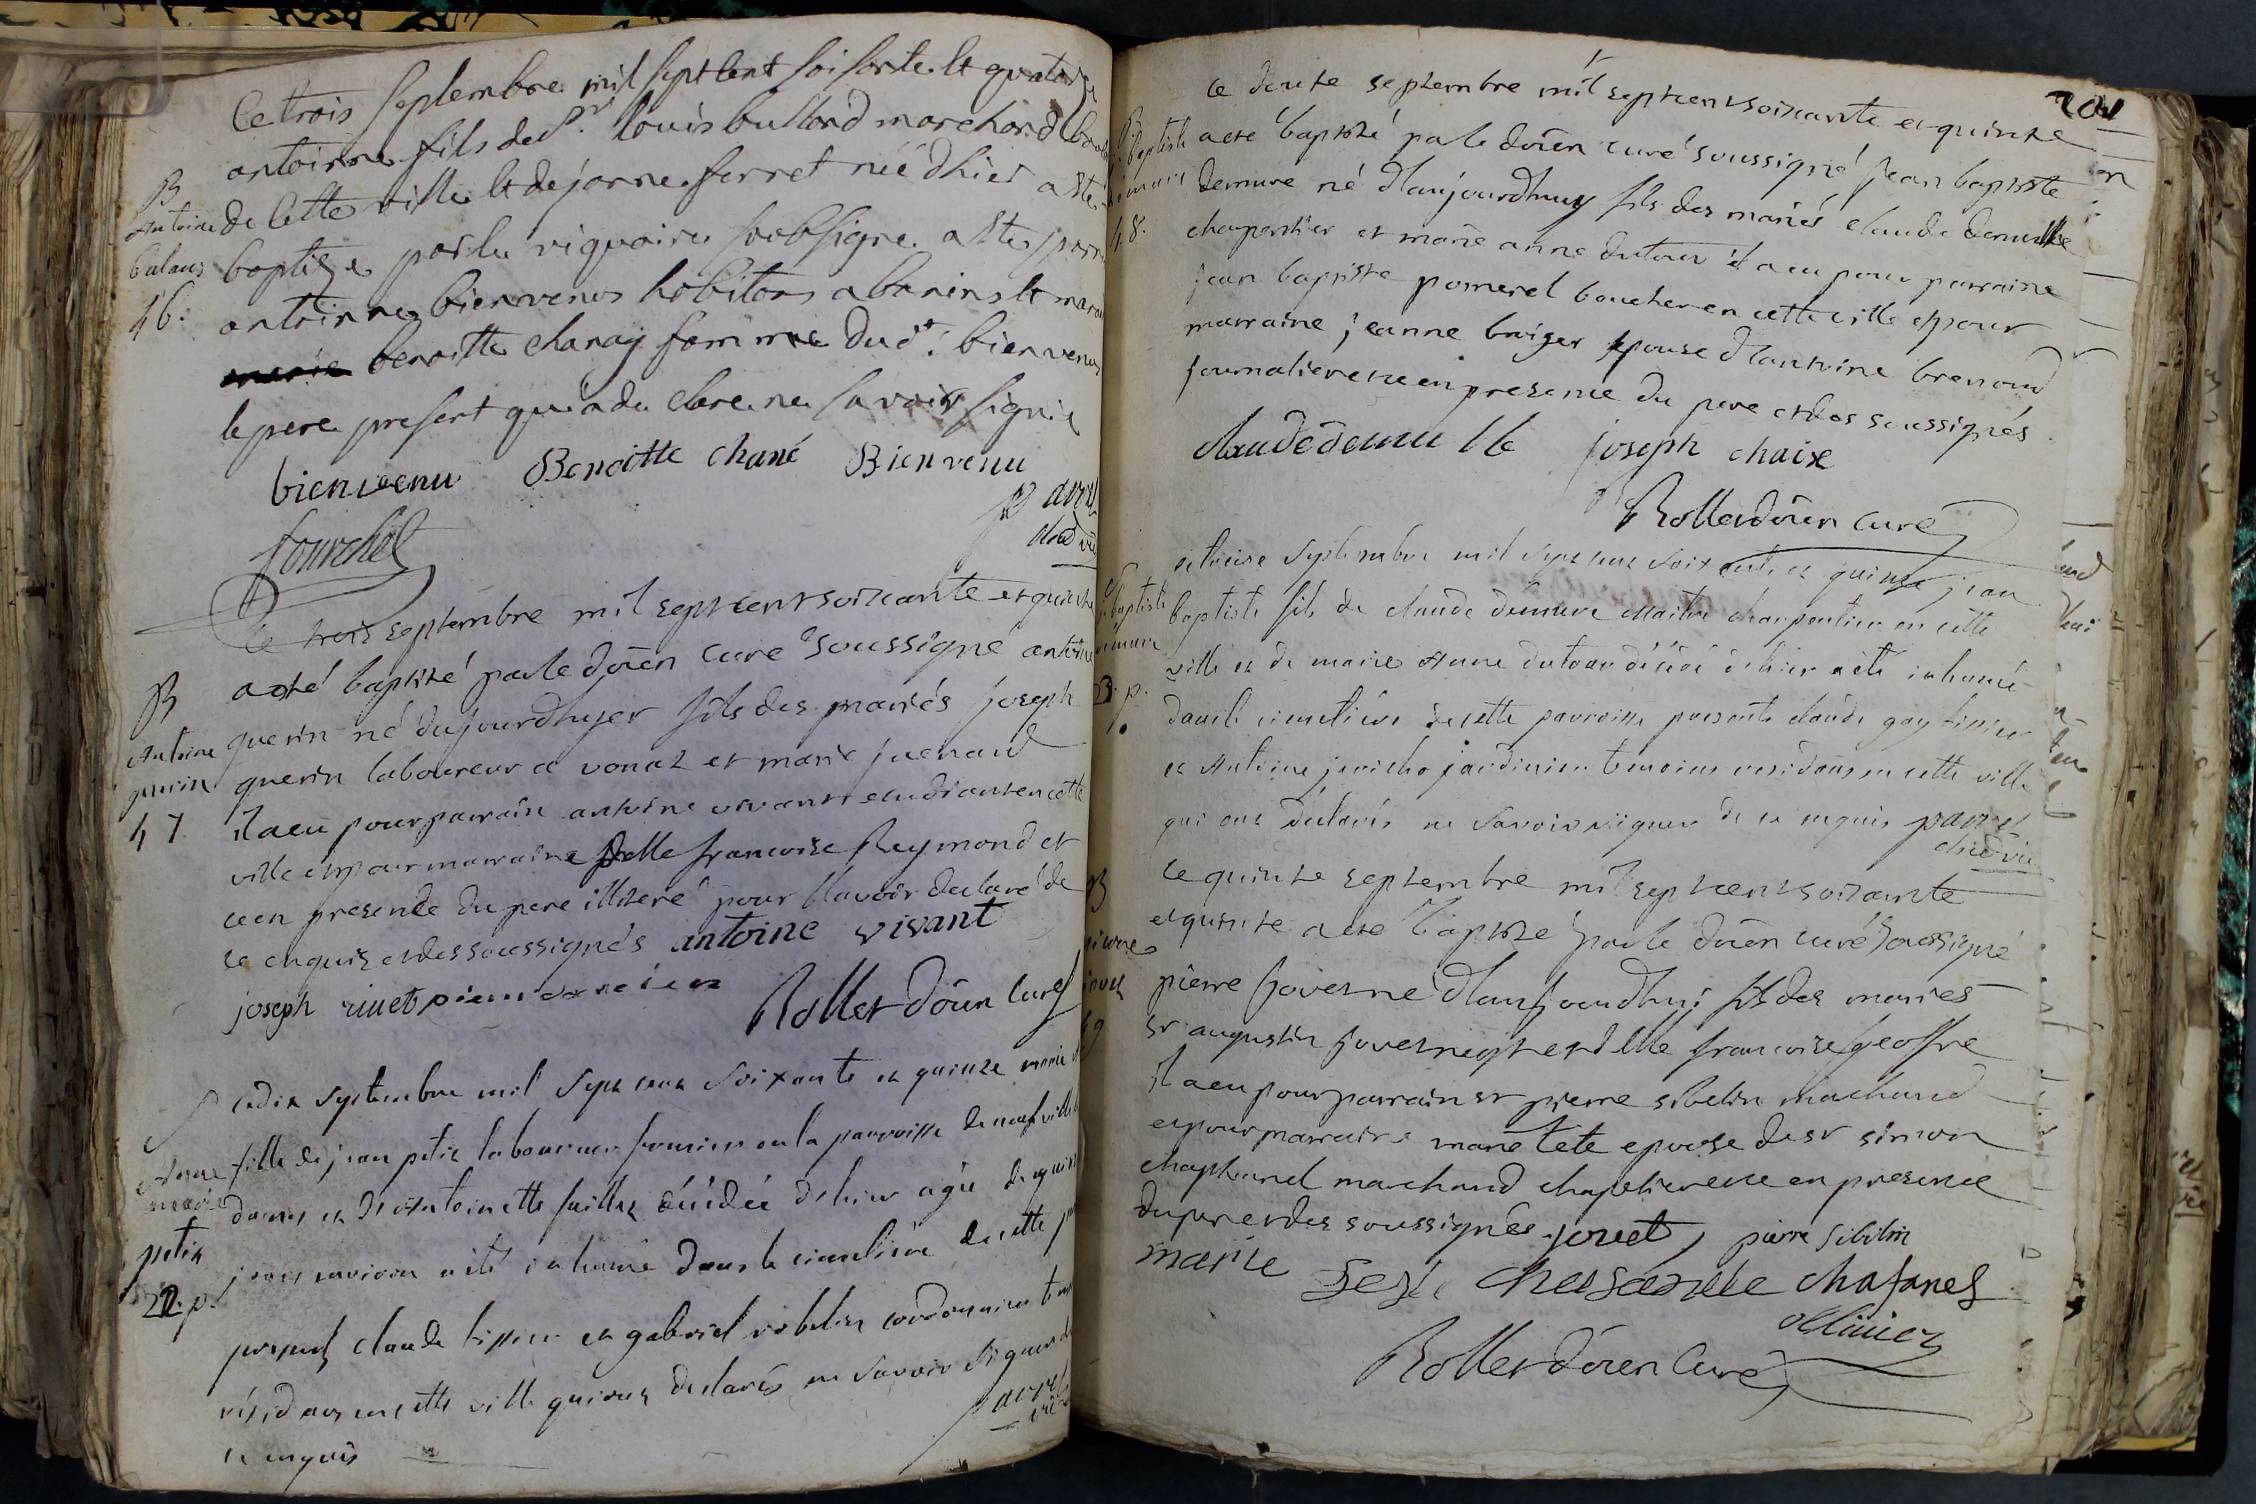 Ce trois septembre mil sept cent soisente et quatorze
antoinne fils de Sr. louis bullond marchand
de cette ville et de janne ferret néé d'hier a esté
baptizé par le viquaire soubsigne a esté parr
antoinne bienvenus habitans a et
benoitte chanay femme dud. bienvenus
le pere present qui a declare ne savoir signé
bienveenu Benoitte chané Bienvenu
fourchet
B
Antoine
46.
Ce trois septembre mil septcent soixante et quinze
a eté baptisé par le doïen curé soussigné antoine
guerin né dujourdhyer fils des mariés joseph
guerin laboureur a vonaz et marie juenaud
il a eu pour parrain antoine vivant etudiant en cette
ville et pour marraine delle francoise Reymond et
ce en presence du pere illiteré pour l'avoir declaré de
ce enquis et des soussignés antoine vivant
joseph riuet
Rollet doïen curé
B
Antoine
guerin
47
ce dix septembre mil sept cent soixante et quinze marie
fille de jean petit laboureur fermier en la parroisse de neufville
dames et d'antoinette decedée d'hier agée de quinze
jours environ a été inhumé dans le cimetiere de cette
presents claude tissier et gabriel robelin cordonnier
résidants en cette ville qui ont declarés ne savoir signer de
ce enquis
S
Anne
marie
petit
22. p.
201
ce douze septembre mil septcent soixante et quinze
a eté baptisé par le doïen curé soussigné jean baptiste
demure né d'aujourdhuy fils des mariés claude demulle
charpentier et marie anne dutour il a eu pour parraine
jean baptiste pomerel boucher en cette ville et pour
marraine jeanne broiyer epouse d'antoine brenoud
journalier et ce en presence du pere et des soussignés
claude demulle joseph chaize
Rollet doïen curé
B
baptiste
48.
ce treize septembre mil sept cent soixante et quinze jean
baptiste fils de claude demure maitre charpentier en cette
ville et de marie Anne dutour décédé d'hier a été inhumé
dans le cimetiere de cette parroisse presents claude gay tissier
et Antoine jericho jardinier temoins residans en cette ville
qui ont déclarés ne savoir signer de ce enquis
S
baptiste
demure
23. p.
ce quinze septembre mil septcent soixante
et quinze a eté baptisé par le doïen curé soussigné
pierre jovet né d'aujourdhuj fils des mariés
sr augustin jovet et delle francoise geoffre
il a eu pour parrain sr pierre sibelin marchand
et pour marraine marie tête epouse de sr simon
chaphanel marchand chapelier et ce en presence
du pere et des soussignés jouet pierre sibilin
marie chafanel
Rollet doïen curé
B
pierre
jovet
49